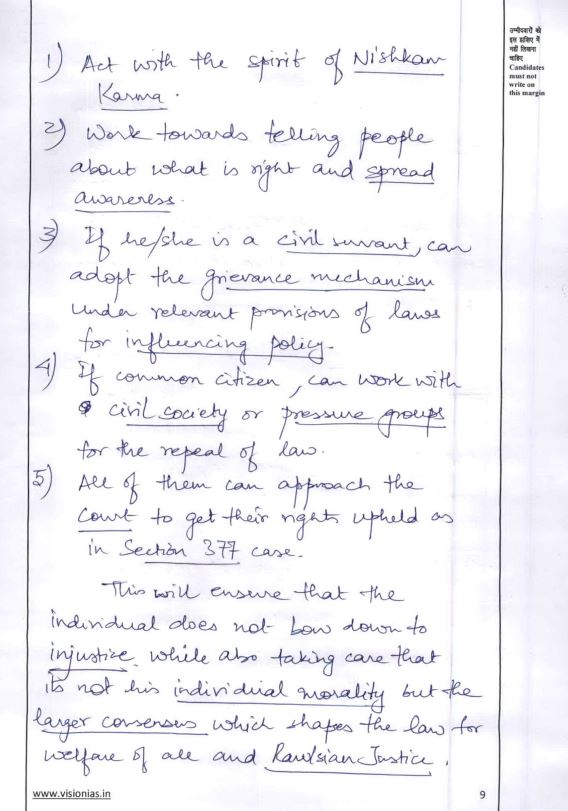 उम्मीदवारों को
इस हाशिए में
नहीं लिखना
चाहिए
Candidates
must not
write on
this margin
1) Act with the spirit of Nishkam
Karma.
2) Work towards telling people
about what is right and spread
awareness.
3) If he/she is a civil survant, can
adopt the grievance mechanism
under relevant provisions of laws
for influencing policy.
4) If common citizen, can work with
civil society or pressure groups
for the repeal of law.
5) All of them can approach the
Court to get their rights upheld as
in Section 377 case.
This will ensure that the
individual does not bow down to
injustice while also taking care that
its not his individual morality but the
larger consensus which shapes the law for
welfare of all and Rawlsian Justice.
www.visionias.in
9